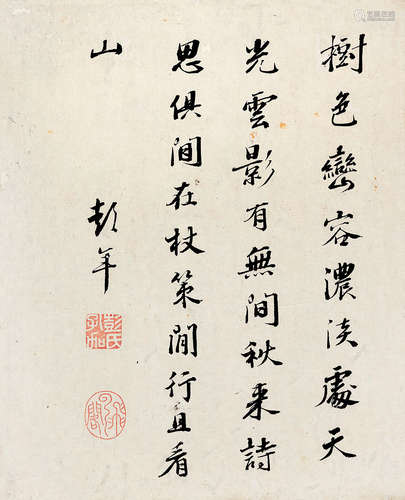 樹色巒容濃淡處天
光雲影有無間秋來詩
思俱閒在杖策閒行且看
山
彭年
彭氏孔加